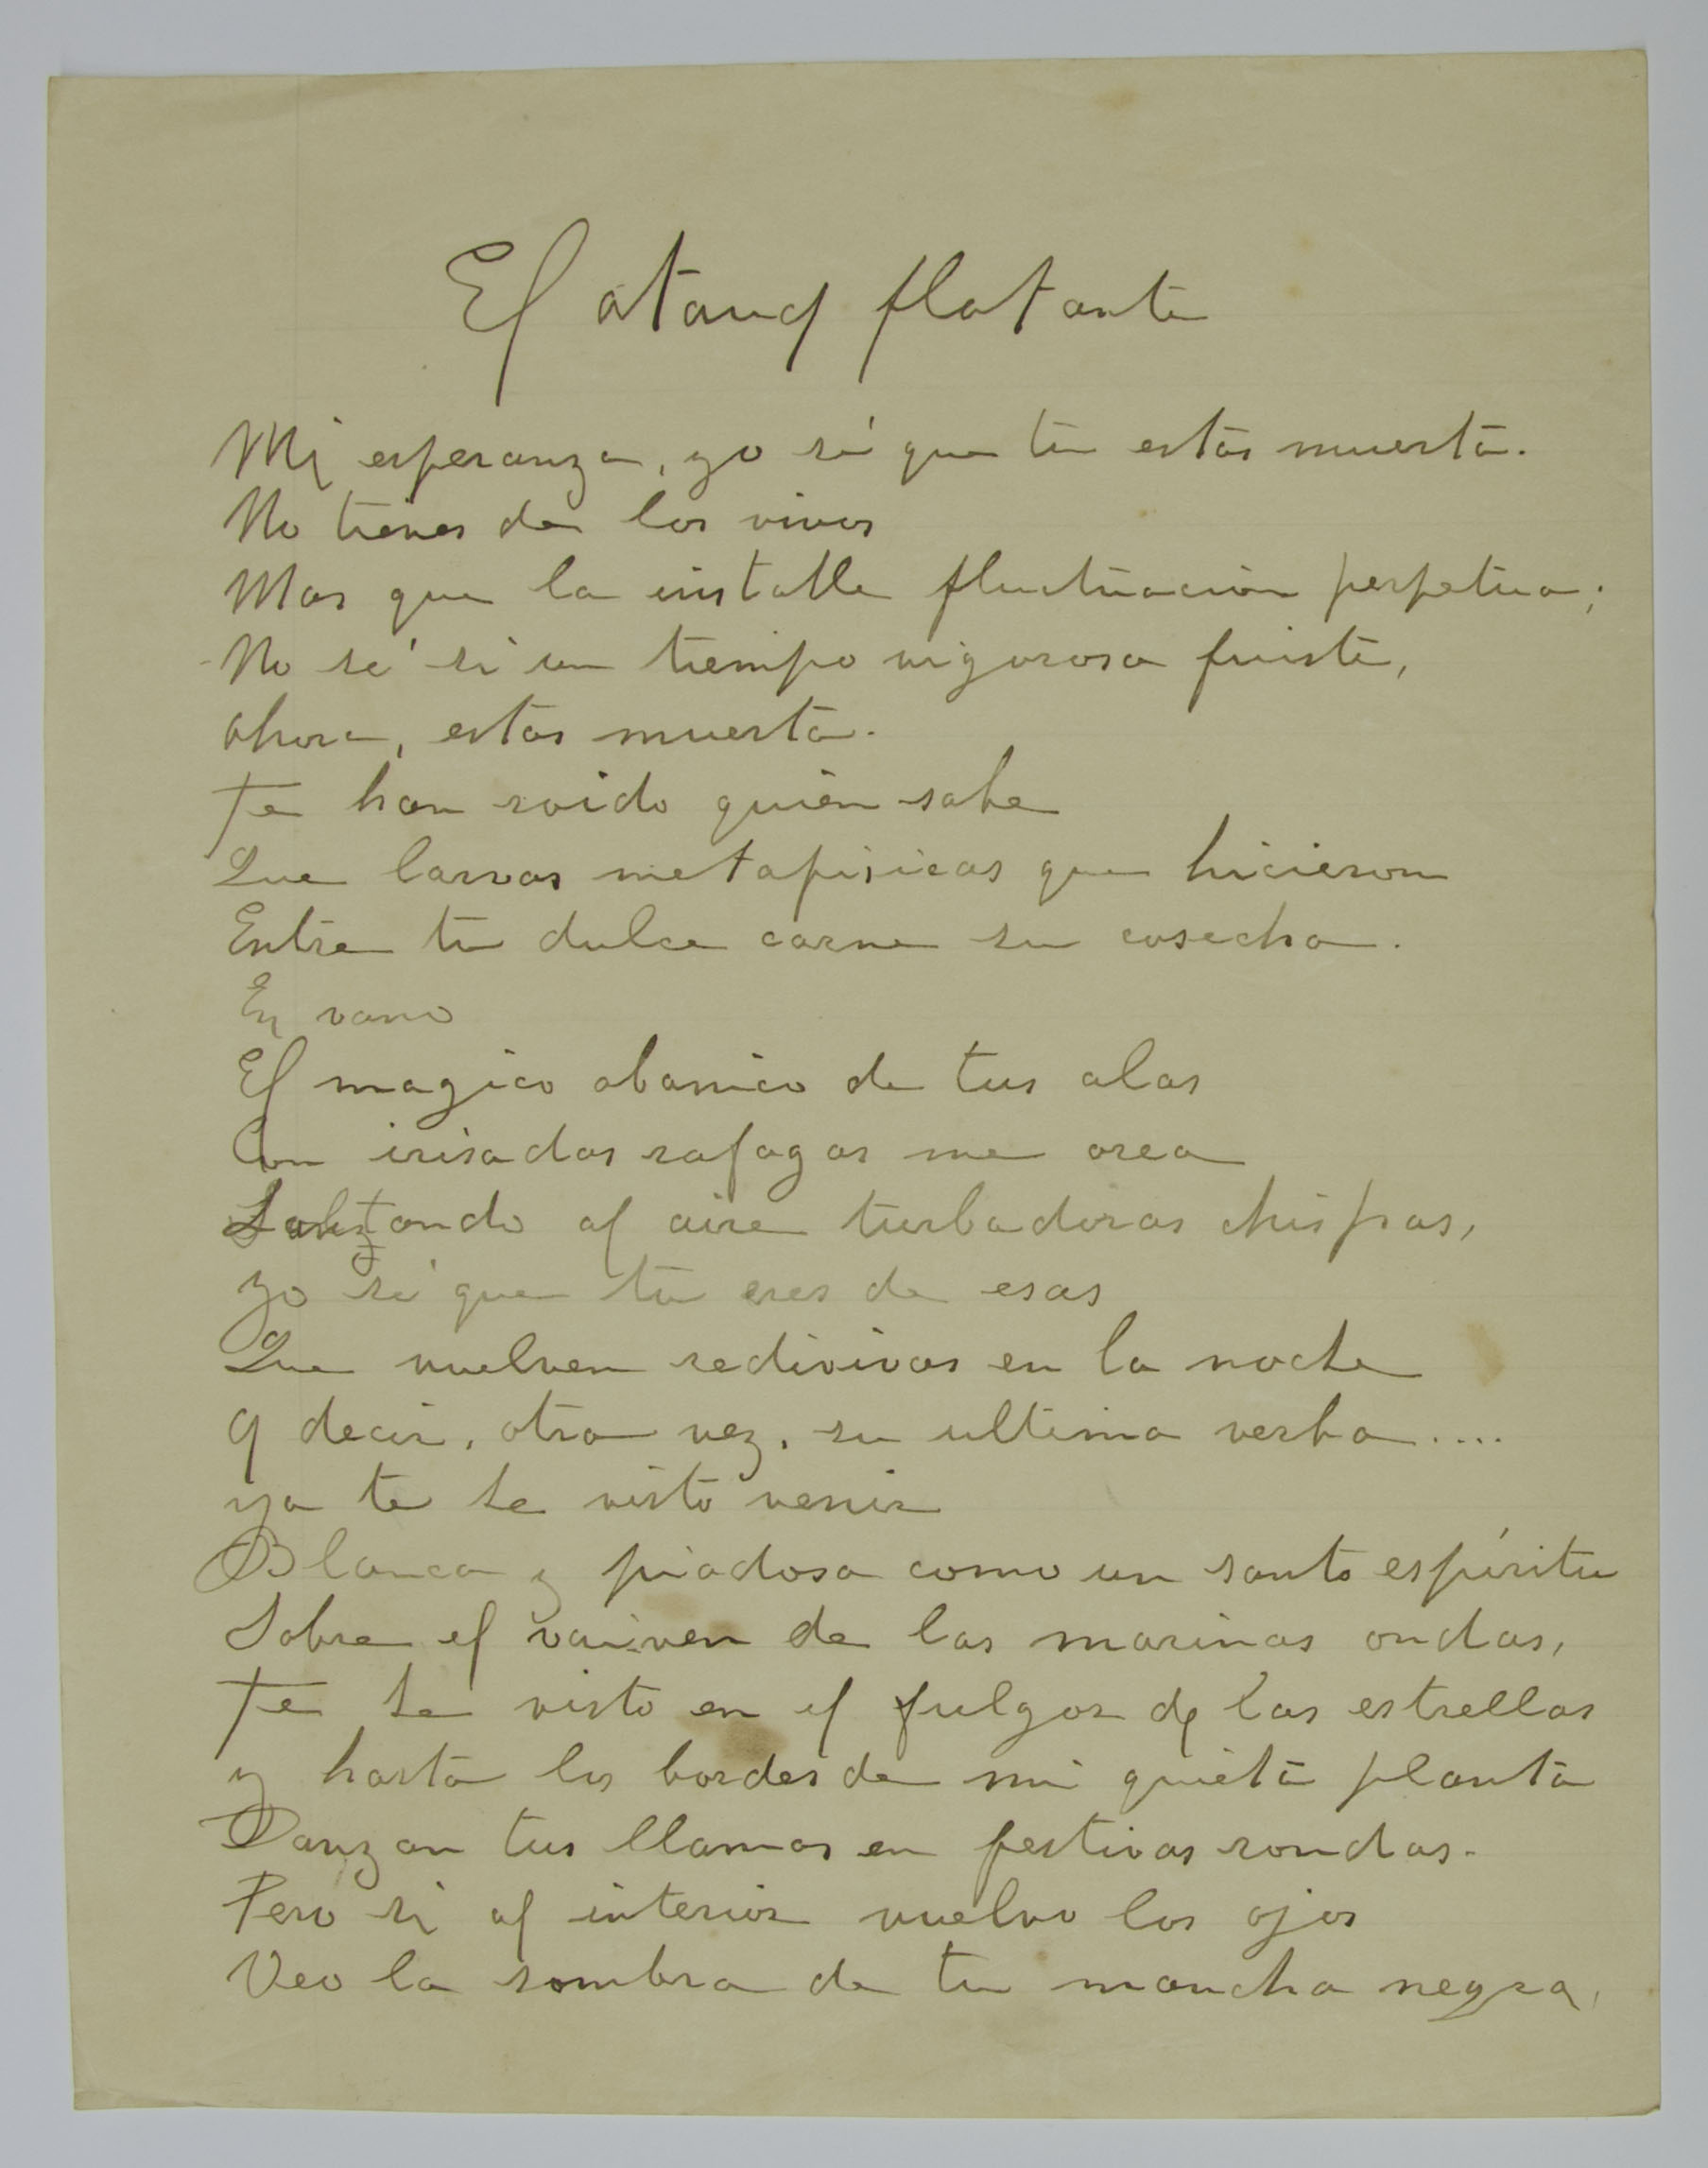 El ataud flotante
Mi esperanza, yo sé que tu estás muerta.
No tienes de los vivos
Mas que la instable fluctuación perpetua;
No sé si un tiempo vigorosa fuiste,
ahora, estas muerta.
Te han roido quién sabe
Que larvas metafisicas que hicieron
Entre tu dulce carne su cosecha.
En vano
El magico abanico de tus alas
Con irisadas rafagas me orea
al aire turbadoras chispas,
yo sé que tu eres de esas
Que vuelven redivivas en la noche
A decir, otra vez, su ultima verba....
ya te he visto venir
Blanca y piadosa como un santo espíritu
Sobre el vaiven de las marinas ondas,
Te he visto en el fulgor de las estrellas
y hasta los bordes de mi quieta planta
Danzan tus llamas en festivas rondas.
Pero si al interior vuelvo los ojos
Veo la sombra de tu mancha negra,